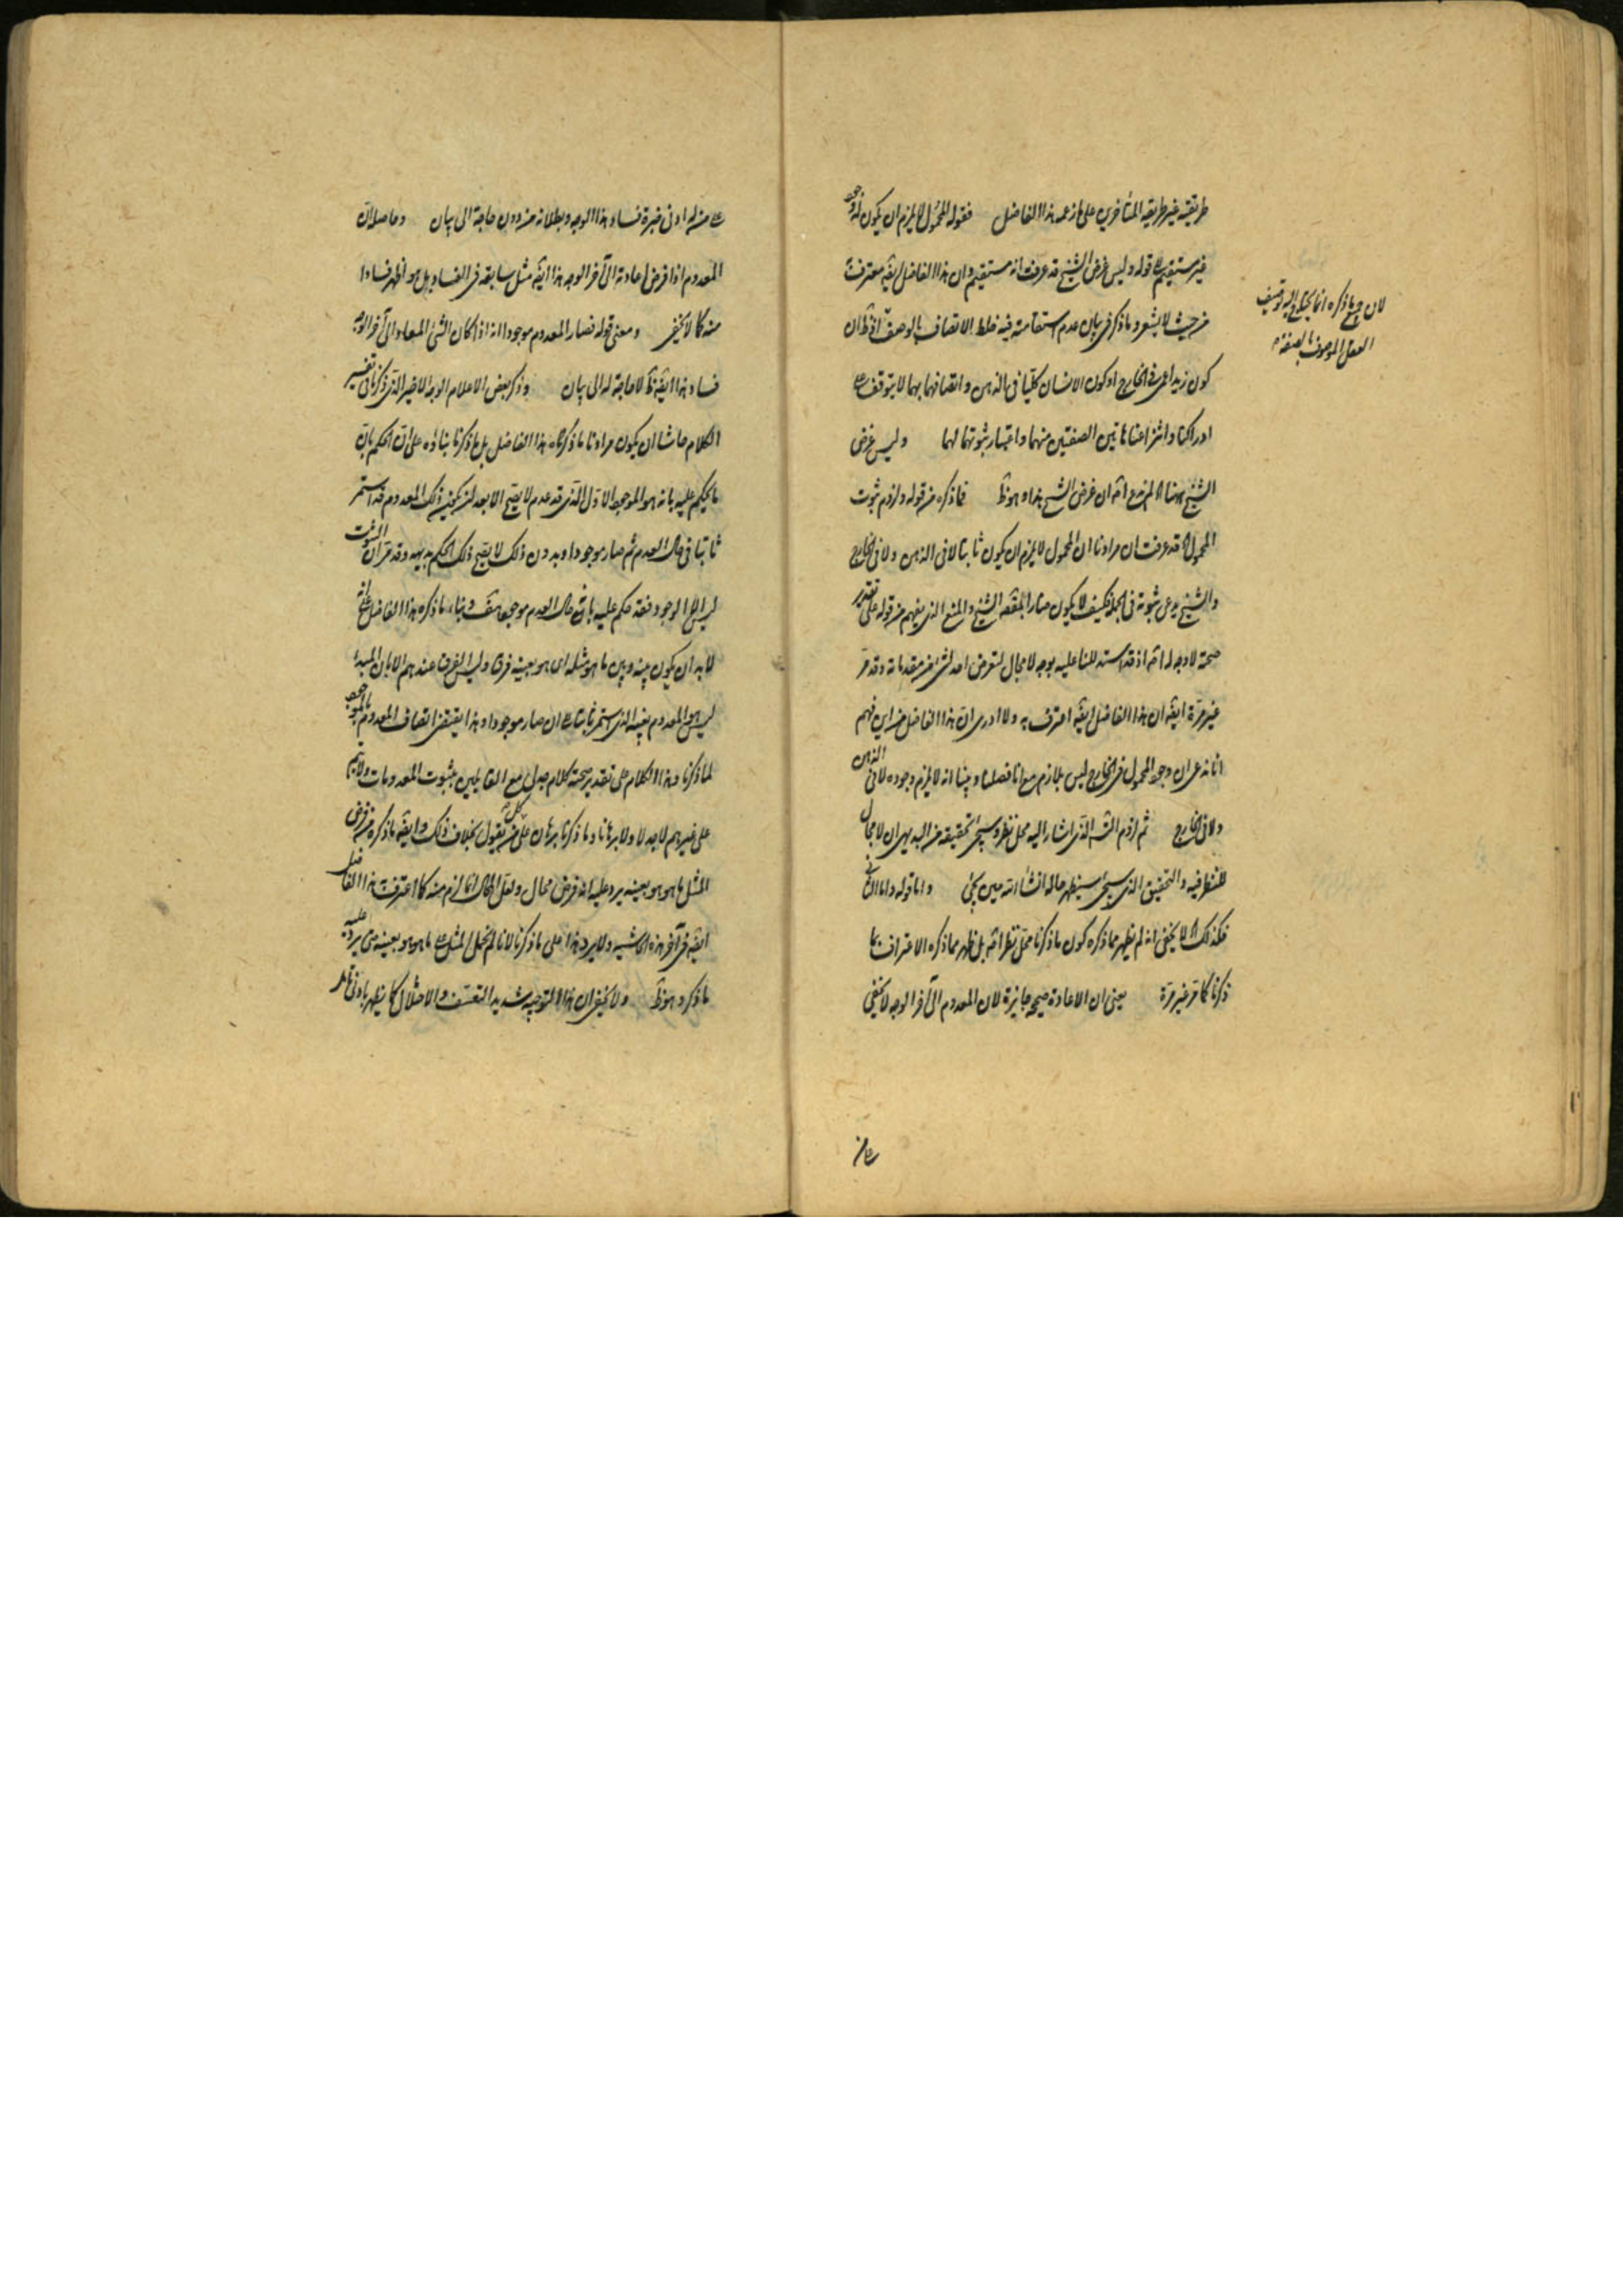 طريقته غير طريقه المتأخرين على ما زعمه هذا الفاضل فقوله المحمول لا يلزم ان يكون له وجود
غير مستقيم قوله وليس غرض الشيخ قد عرفت انه مستقيم وان هذا الفاضل ايضه معترف
من حيث لا يشعر وما ذكر في بيان عدم استقامته فيه خلط الاتصاف بالوصف اذ ظ ان
كون زيد اعمى في الخارج او كون الانسان كليا في الذهن واتصافهما بهما لا يتوقف على
ادراكنا وانتزاعنا هاتين الصفتين منهما واعتبار ثبوتهما لهما وليس غرض
الشيخ ان غرض الشيخ هذا وهو ظ فما ذكره من قوله ولزوم ثبوت
المحمول قد عرفت ان مرادنا ان المحمول لا يلزم ان يكون ثابتا لا في الذهن ولا في الخارج
والشيخ يدعى ثبوته في الجملة فكيف لا يكون منه الشيخ والمنع الذي يفهم من قوله على تقدير
صحته لا وجه له اذ قد استدللنا عليه بوجه لا مجال لتعرض احد لشئ من مقدماته وقد مر
غير مرة ايضه ان هذا الفاضل ايضه اعترف به ولا ادرى ان هذا الفاضل من اين فهم
انا ندعى ان وجود المحمول في الخارج ليس بلازم مع انا فصلنا وبينا انه لا يلزم وجوده لا في الذهن
ولا في الخارج ثم لزوم التس الذي اشار اليه محل نظر وسيجئ تحقيقه من البديهى ان لا مجال
للنظر فيه والتحقيق الذي سيجئ سيظهر حاله انشاء الله حين يجئ واما قوله واما الثاني
فكذلك لا يخفى انه لم يظهر مما ذكره كون ما ذكرنا محل نظر بل ظهر مما ذكره الاعتراف بما
ذكرنا كما مر غير مرة يعنى ان الاعادة صحيحة جايزة لان المعدوم الى آخر الوجه لا يخفى
على من
لان ما ذكره انما يحتاج اليه توصيف
العقل الموصوف بالصفة
على من له ادنى خبرة فساد هذا الوجه وبطلانه من دون حاجة الى بيان وحاصله ان
المعدوم اذا فرض اعادته الى آخر الوجه هذا ايضه مثل سابقه في الفساد بل هو اظهر فسادا
منه كما لا يخفى ومعنى قوله فصار المعدوم موجودا انه اذا كان الشئ المعاد الى آخر الوجه
فساد هذا ايضه ظ لا حاجة له الى بيان وذكر بعض الاعلام الوجه الاخير الذي ذكرنا في تفسير
الكلام حاشا ان يكون مرادنا ما ذكره هذا الفاضل بل ما ذكرنا بناؤه على ان الحكم بان
ما يحكم عليه بانه هو الموجود الاول الذي قد عدم لا يصح الا بعد ان يكون ذلك المعدوم قد استمر
ثابتا في حال العدم ثم صار موجودا وبدون ذلك لا يصح ذلك الحكم بديهه وقد مر ان الثبوت
ليس الا الوجود فقد حكم عليه بانه في حال العدم موجود هف وبناء ما ذكره هذا الفاضل على انه
لا بد ان يكون بينه وبين ما هو مثله اى هو بعينه فرق وليس الفرق عندهم الا بان المبدء
ليس هو المعدوم بعينه الذي استمر ثابتا الى ان صار موجودا وهذا يقتضى اتصاف المعدوم بالوجود
لما ذكرنا وهذا الكلام على تقدير صحته كلام جدلى مع القائلين بثبوت المعدومات ولا يتم
على غيرهم لا جدلا ولا برهانا وما ذكرنا برهان على كل من يقول بخلاف ذلك وايضه ما ذكره من فرض
المثل ما هو هو بعينه يرد عليه انه فرض محال ولعل المحال انما لزم منه كما اعترف هذا الفاضل
ايضه في آخر هذه الحاشيه ولا يرد هذا على ما ذكرنا لانا لم نجعل المثل ما هو هو بعينه حتى يرد عليه
ما ذكر وهو ظ ولا يخفى ان هذا التوجيه شديد التعسف والاختلال كما يظهر بادنى تأمل